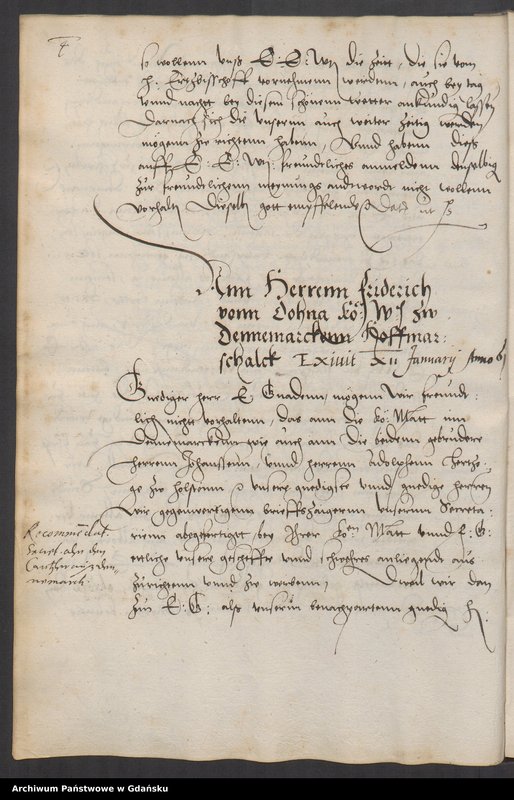 4
so wollenn unß E. E. W. die zeitt, die sie vom
h. Ertzbischoff vornehmenn werdenn, auch bey tag
unnd nacht bey diesem schönem wetter ankündig lassen
darnach sich die unserrn auch weiter zeitig werden
mögenn zu richtenn habenn, Unnd habenn dieß
auff E. E. W. freundtliches anmeldenn derselbig
zur freundtlichenn meynung andtwordt nicht wollenn
vorhalten Dieselb gott empfhelendt Dat ut
Ann Herrenn friderich
vonn Dohna Kö: W: zw
Dennemarcken Hoffmar:
schalck Exivit xii January Anno 61
Gnediger herr E Gnadenn mögenn wir freundt:
lich nicht vorhaltenn, das ann die Kö: Matt inn
Dennemarcken wie auch ann die beidenn gebrüdere
herrenn Johanssenn, unnd herrenn Adolphenn Hertzo:
ge zu holstenn unsere gnedigste unnd gnedige herren
wir gegenwertigenn brieffszeigernn unsernn Secreta:
rienn abgefertigtt bey Ihrer Kön Matt unnd f. G.
ettliche unsere gescheffte unnd schweres anliegendt aus
zurichtenn unnd zu werbenn, Dweil wir dan
zun E. G. alß unserm benachpartenn gnedig h.
Recommendat.
Secret. ahn den
Cantzler in den,
nemarck.
Archiwum Państwowe w Gdańsku